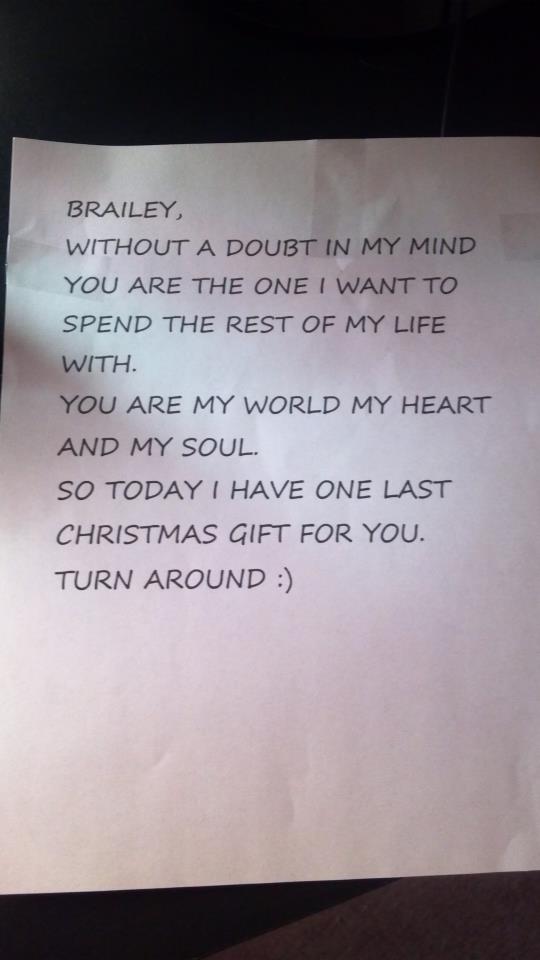 BRAILEY,
WITHOUT A DOUBT IN MY MIND
YOU ARE THE ONE I WANT TO
SPEND THE REST OF MY LIFE
WITH.
YOU ARE MY WORLD MY HEART
AND MY SOUL.
SO TODAY I HAVE ONE LAST
CHRISTMAS GIFT FOR YOU.
TURN AROUND :)